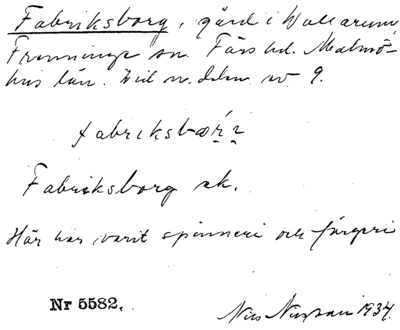 Fabriksborg, gård i Wallarum,
Frenninge sn. Färs hd. Malmö-
hus län. Hid n. delen av 9.
fabriksbor̨
Fabriksborg ek.
Här har varit spinneri och färgeri
Nr 5582.
Nils 1934.